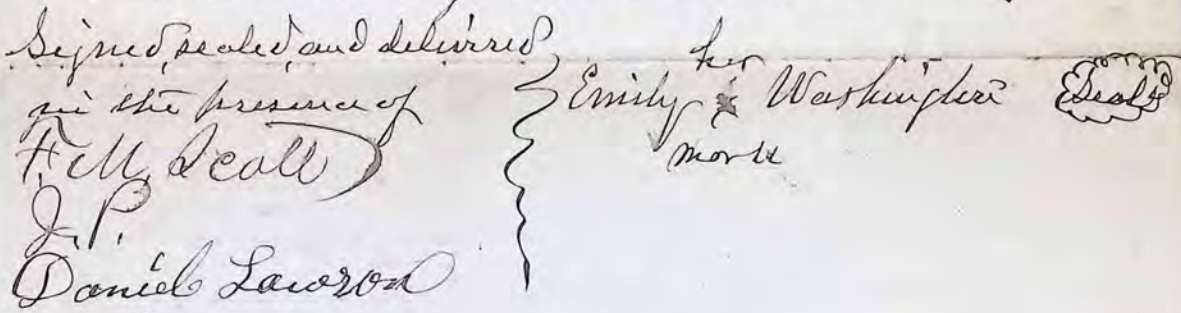 Signed, sealed, and delivered
in the presence of
F. M. Scott
J. P.
Daniel Lawson
her
Emily x Washington Seal
mark